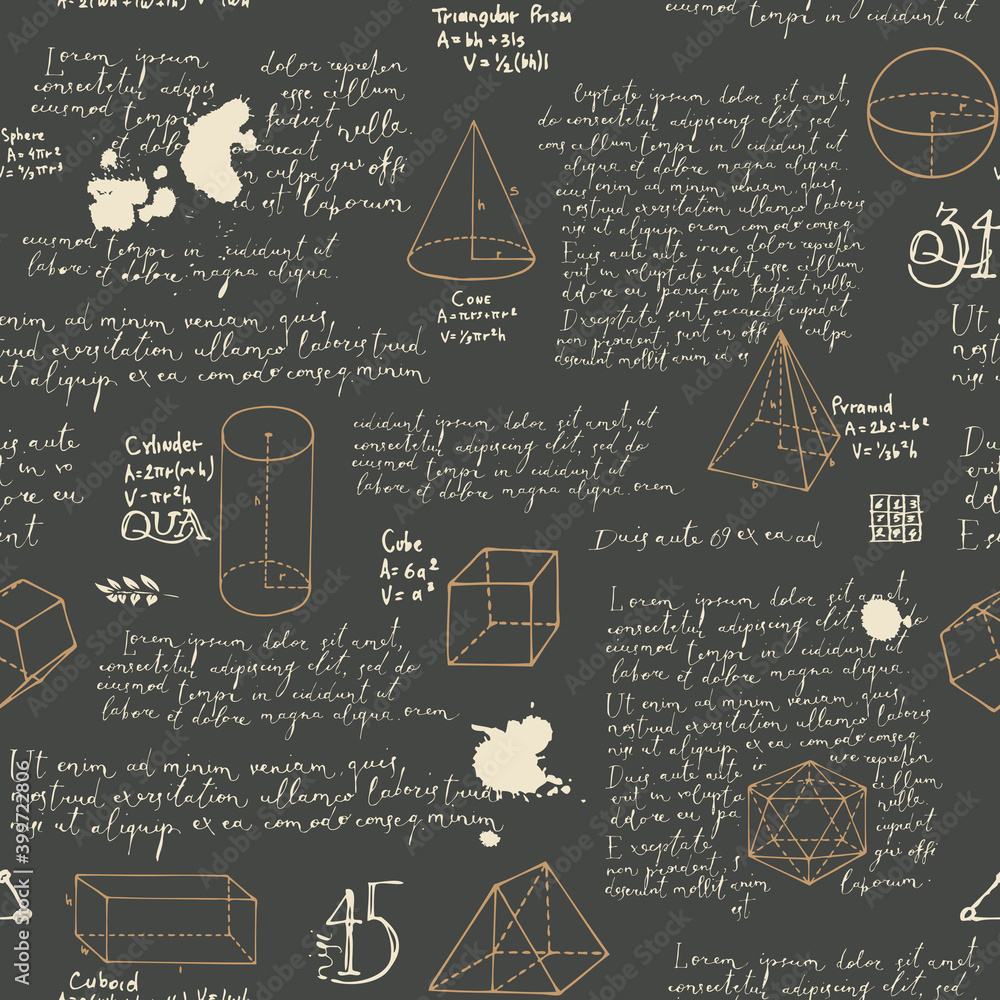 Triangular Prism
A= bh +3ls
V= ½(bh)l
eiusmod tempi in cididunt ut
Lorem ipsum
consectetur adipis
eiusmod tempi
et dolo
dolor reprehen
esse cillum
fugiat nulla.
occaecat
in culpa qui offi
id est laborum
Sphere
A= 4πr²
V= 4/3πr³
eiusmod tempi in cididunt ut
labore et dolore magna aliqua.
enim ad minim veniam, quis
trud exersitation ullamco laboris trud
ut aliquip ex ea comodo conseq minim
s
h
r
Cone
A=πrs+πr²
V=⅓πr²h
luptate ipsum dolor sit amet,
do consectetur adipiscing elit, sed
cons cillum tempi in cididunt ut
aliqua et dolore magna aliqua.
eius enim ad minim veniam, quis
nostrud exersitation ullamco laboris
nisi ut aliquip ex ea comodo conseq
Euis aute aute irure dolor reprehen
erit in voluptate velit esse cillum
dolore eu pariatur fugiat nulla
Dxceptate sint occaecat cupidat
non proident, sunt in offi culpa
deserunt mollit anim id es
r
34
Ut
nost
nisi
is aute
t in vo
ore eu
int
Cylinder
A=2πr(r+h)
V-πr²h
QUA
h
r
cididunt, ipsum dolor sit amet, ut
consectetur adipiscing elit, sed do
eiusmod tempi in cididunt ut
labore et dolore magna aliqua. orem
h
s
b
b
Pyramid
A=2bs+b²
V=⅓b²h
Cube
A=6a²
V=a³
Duis aute 69 ex ea ad
Lorem ipsum dolor sit amet,
consectetur adipiscing elit, sed do
eiusmod tempi in cididunt ut
labore et dolore magna aliqua. orem
Lorem ipsum dolor sit amet,
consectetur adipiscing elit, do
eiusmod tempi in cididunt ut
labore et dolore magna aliqua.
Ut enim ad minim veniam, quis
nostrud exersitation ullamco laboris
nisi ut aliquip ex ea comodo conseq
Duis aute aute ir ure reprehen
erit in volupta cillum
dolore eu pa nulla
Exceptate cupidat
non proident, s qui offi
deserunt mollit anim laborum.
est
Ut enim ad minim veniam, quis
nostrud exersitation ullamco laboris trud
nisi ut aliquip ex ea comodo conseq minim
h
w
l
Cuboid
V=lwh
45
Lorem ipsum dolor sit amet,
consectetur adipiscing elit, sed
Adobe Stock | #399722806
Adobe Stock